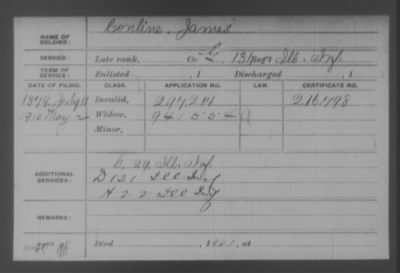 NAME OF SOLDIER: Conline, James
SERVICE: Late rank, Co. G, 131 Ills. Inf.
TERM OF SERVICE: Enlisted , 1 Discharged , 1
DATE OF FILING. CLASS. APPLICATION NO. LAW. CERTIFICATE NO.
1879, July 11 Invalid, 297.214 216.498
Widow, 941554
Minor,
ADDITIONAL SERVICES:
29 Ill. Inf
D 131 Ill Inf
H 22 Ill Inf
REMARKS:
Died , 1901, at